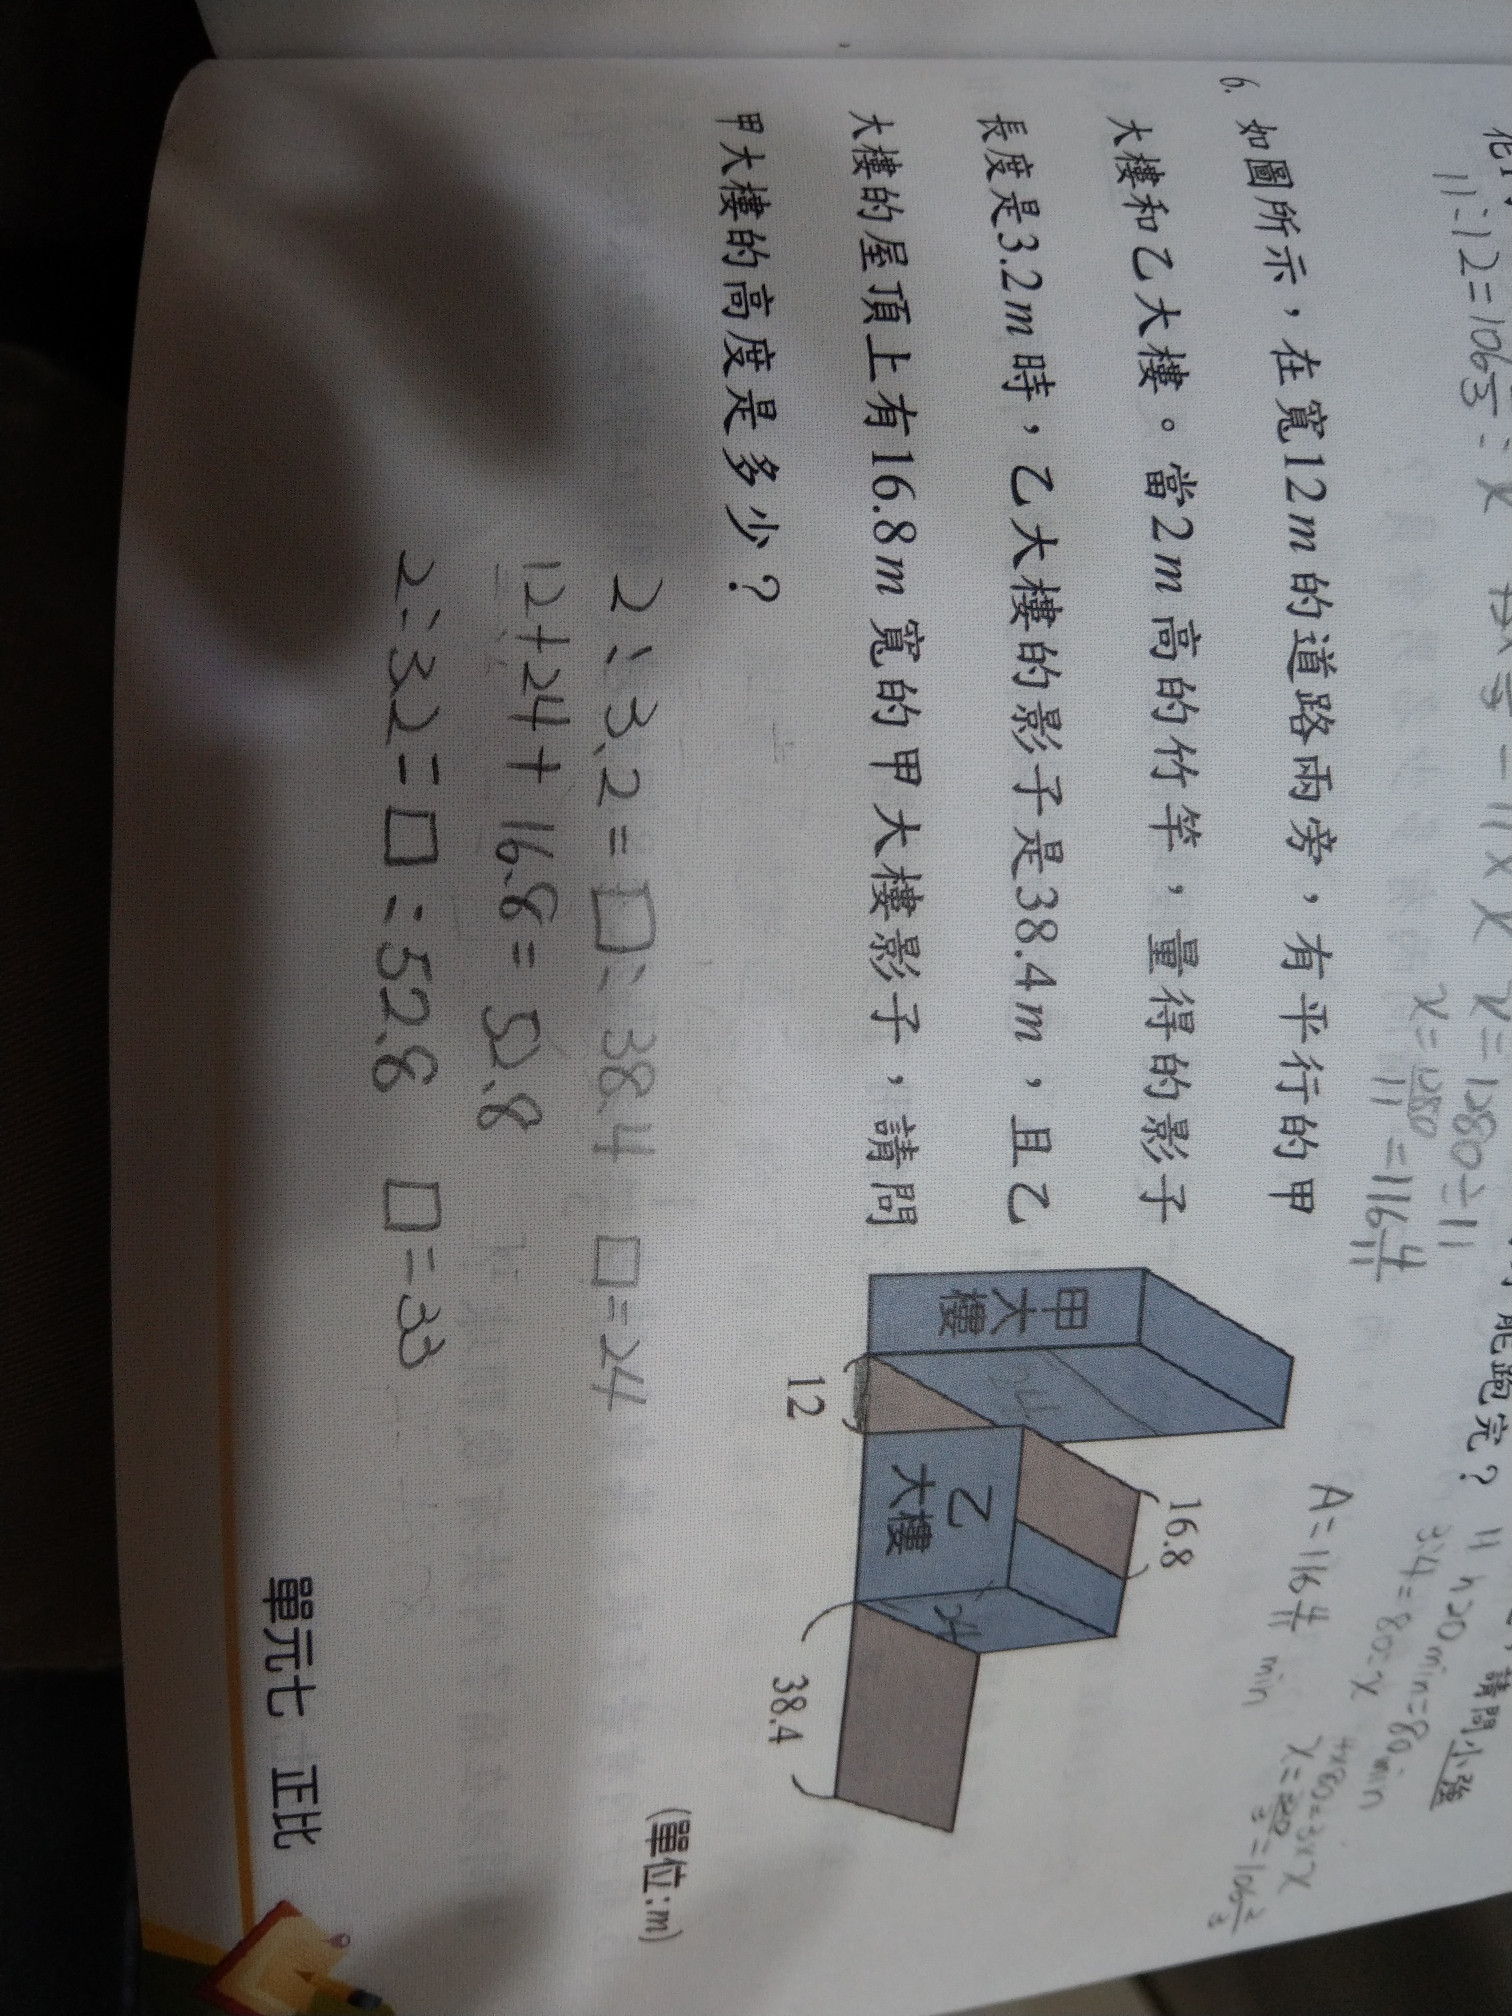 11:12=106
x=1280÷11
x=1280/11=116 4/11
6. 如圖所示，在寬12m的道路兩旁，有平行的甲
大樓和乙大樓。當2m高的竹竿，量得的影子
長度是3.2m時，乙大樓的影子是38.4m，且乙
大樓的屋頂上有16.8m寬的甲大樓影子，請問
甲大樓的高度是多少？
能跑完？
請問小強
3:4=80:x
A=116 4/11 min
甲大樓
24
乙
大樓
24
12
16.8
38.4
(單位:m)
2:3.2=□:38.4 □=24
12+24+16.8=52.8
2:3.2=□:52.8 □=33
單元七 正比